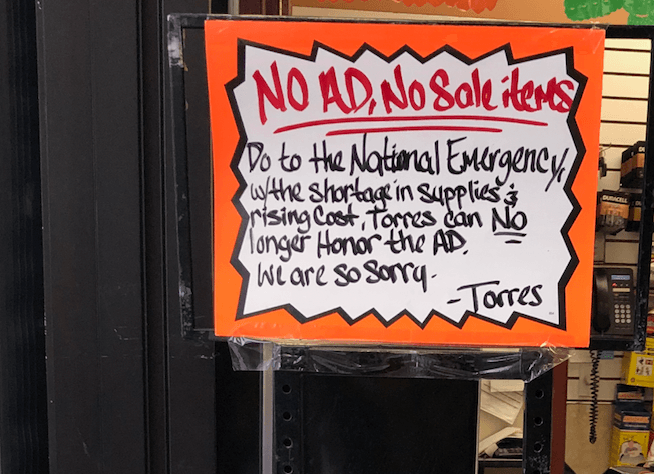 NO AD, No Sale items
Do to the National Emergency,
w/the shortage in supplies &
rising Cost, Torres can NO
longer Honor the AD.
We are so Sorry.
-Torres
DURACELL